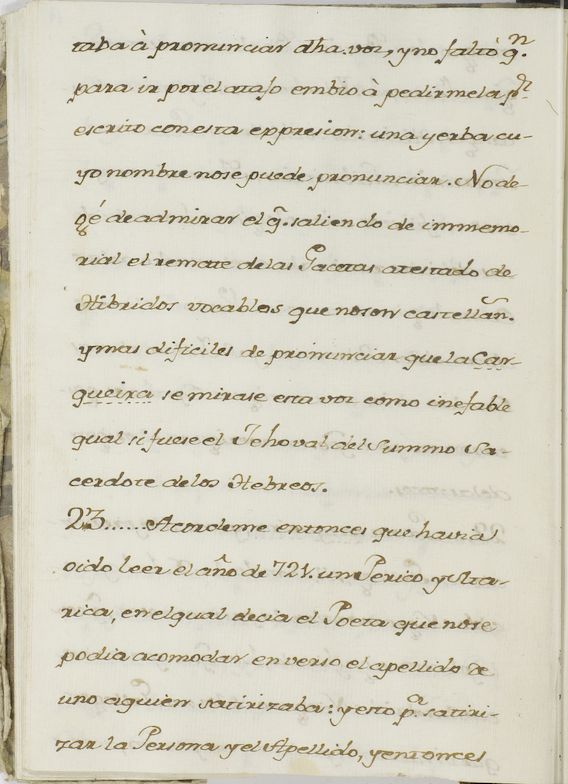 taba à pronunciar dha. voz, y no faltó q.n
para ir por el atajo embio à pedirmela p.r
escrito con esta expresion: una yerba cu-
yo nombre nose puede pronunciar. No de-
gé de admirar el q.e saliendo de immemo-
rial el remate delas Gacetas atestado de
Hibridos vocablos que noson castellan.s
y mas dificiles de pronunciar que la Car-
queixa se mirase esta voz como inefable
qual si fuese el Jehoval del Summo Sa-
cerdote de los Hebreos.
23......Acordeme entonces que havia
oido leer el año de 721. un Perico y
rica, en el qual decia el Poeta que nose
podia acomodar en verso el apellido de
uno aquien satirizaba: y esto p.a satiri-
zar la Persona y el Apellido, y entonces